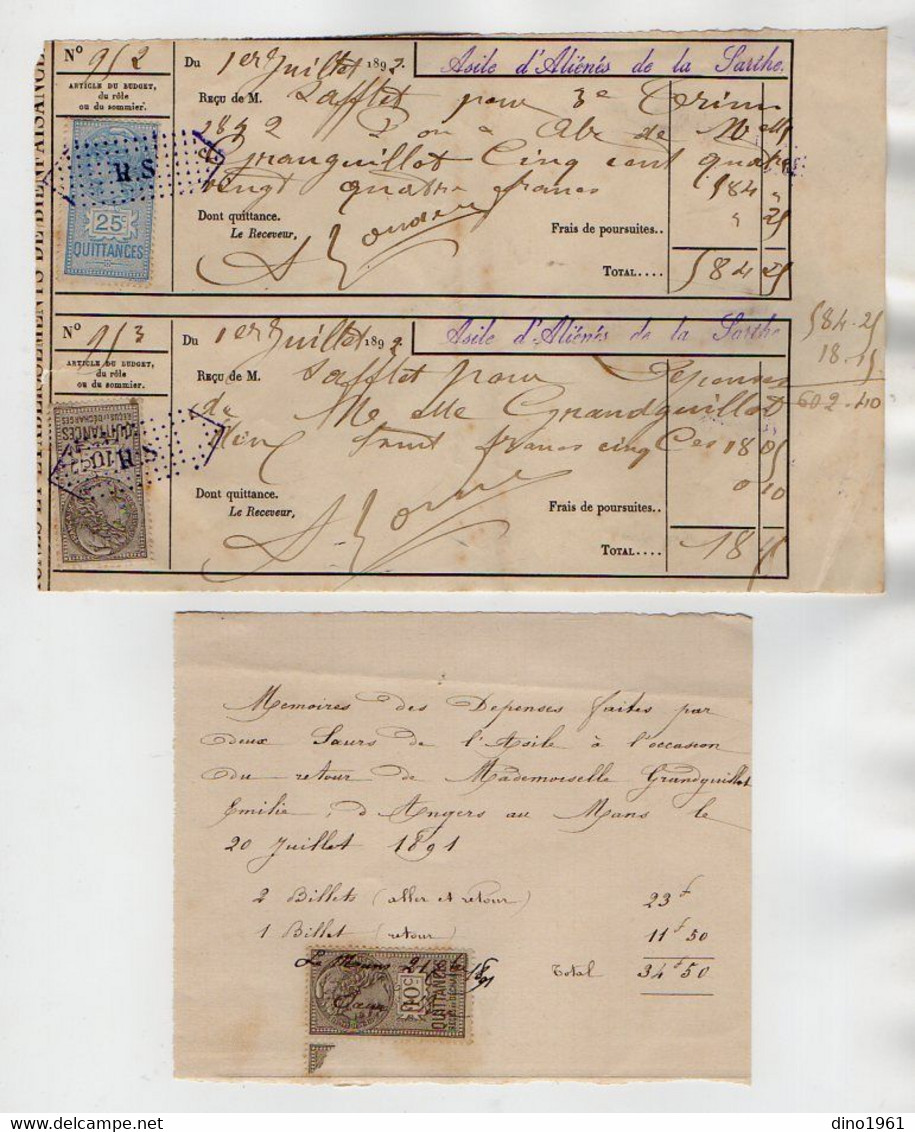 N° 952
ARTICLE DU BUDGET,
du rôle
ou du sommier.
Du 1er Juillet 1892. Asile d'Aliénés de la Sarthe.
REÇU DE M. Lafflet pour 3e
1892
Granguillot Cinq cent quatre
vingt quatre francs 584 "
Dont quittance.
Le Receveur,
Frais de poursuites.. " 25
TOTAL.... 584 25
RS
25c
QUITTANCES
N° 953
ARTICLE DU BUDGET,
du rôle
ou du sommier.
Du 1er Juillet 1892. Asile d'Aliénés de la Sarthe
REÇU DE M. Lafflet pour Dépenses
de Melle Grandguillot
Dix huit francs cinq Ces 18 05
0 10
Dont quittance.
Le Receveur,
Frais de poursuites..
TOTAL.... 18 15
RS
10c
QUITTANCES
584-25
18-15
602-40
ET ÉTABLISSEMENTS DE BIENFAISANCE
Memoires des Depenses faites par
deux Sœurs de l'Asile à l'occasion
du retour de Mademoiselle Grandguillot
Emilie, d'Angers au Mans le
20 Juillet 1891
2 Billets (aller et retour) 23f
1 Billet (retour) 11f50
Total 34f50
Le Mans 21
Sœur
10c
QUITTANCES
dino1961